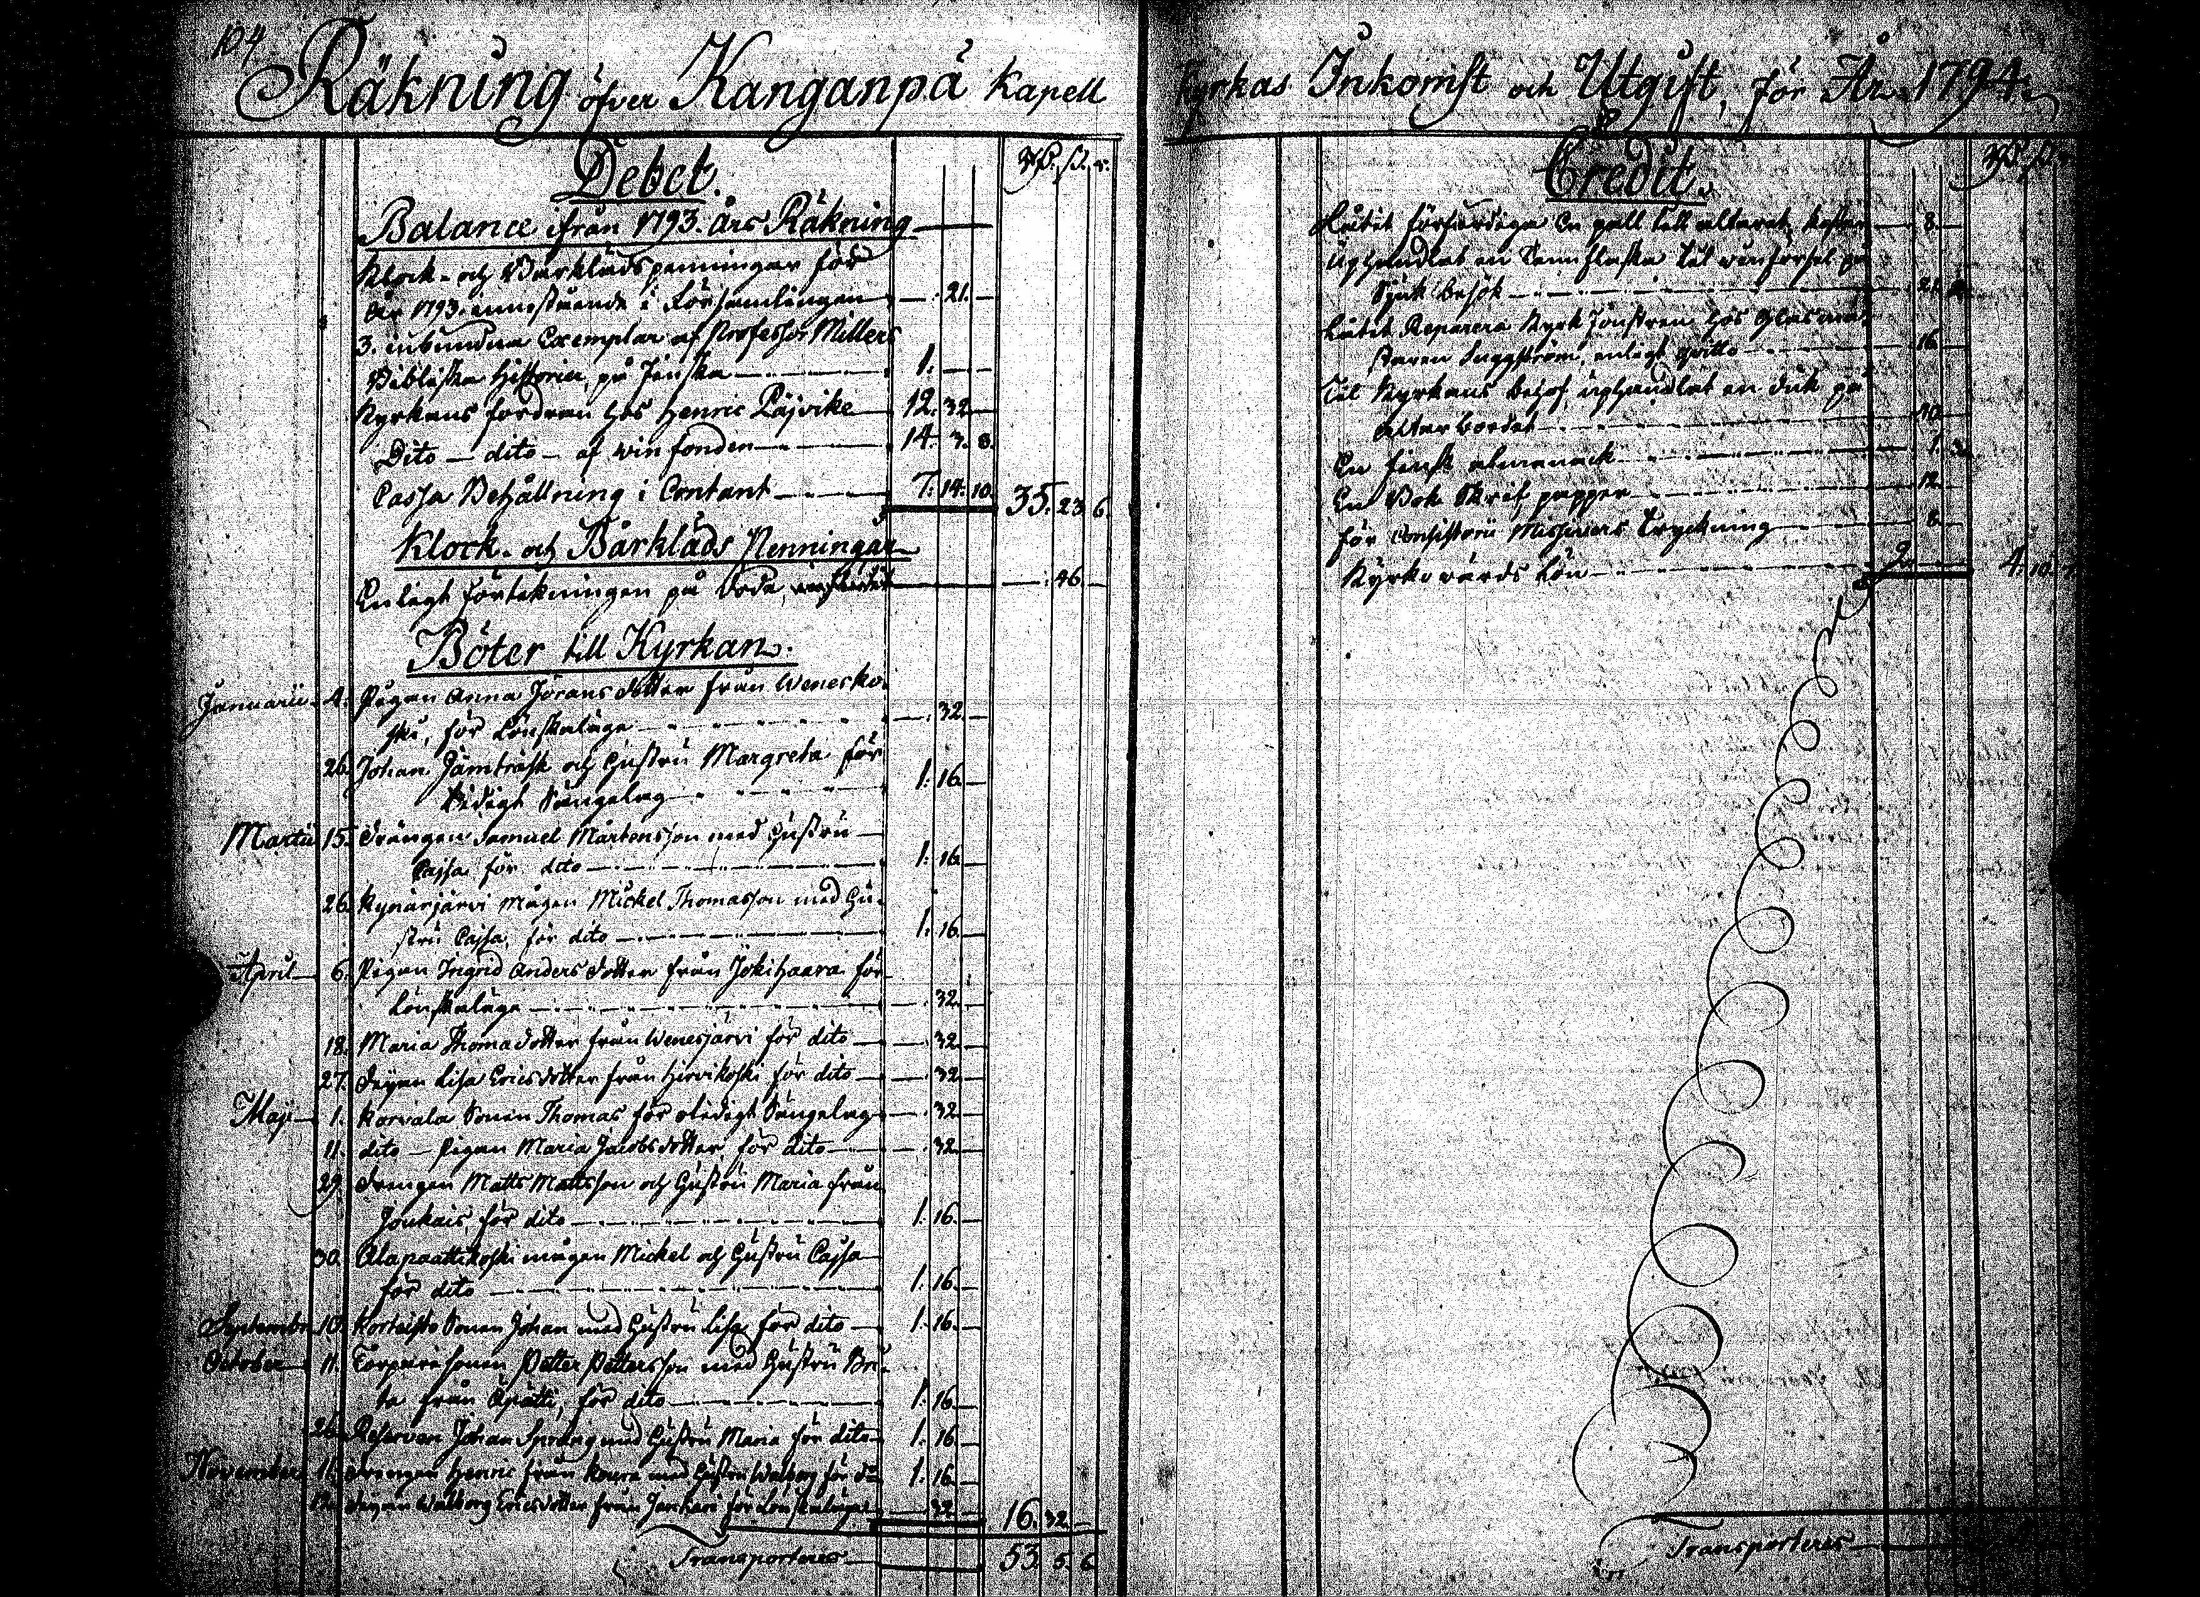 104
Räkning öfver Kanganpä Kapell Kyrkas Inkomst och Utgift, för År 1794.
Debet.
Balance ifrån 1793. års Räkning
Klock- och Bårklädspenningar för
år 1793. innestående i Församlingen — 21. —
3. inbundna Exemplar af Professor Millers
Bibliska Historier, på Finska — 1. —
Kyrkans fordran hos Henric Päjvike — 12. 32 —
Dito — dito — af vin fonden — 14. 7. 8.
Cassa Behållning i Contant — 7. 14. 10. 35. 23. 6.
Klock- och Bårkläds Penningar
Enligt förtekningen på döda — 46. —
Böter till Kyrkan.
Januarii. 4. Pigan Anna Jörans dotter från Wenesko-
ski, för Lönskaläge — 32. —
26. Johan Jämträsk och Hustru Margreta för
Otidigt Sängelag — 1. 16. —
Martii 15. Drängen Samuel Mårtensson med Hustru
Cajsa för dito — 1. 16. —
26. Kynärjärvi mågen Mickel Thomasson med Hu-
stru Cajsa, för dito — 1. 16. —
April 6. Pigan Ingrid Anders dotter från Jokihaara för
Lönskaläge — 32. —
18. Maria Thomadotter från Wenesjärvi för dito — 32. —
27. Lisa Ericsdotter från Hirvikoski för dito — 32. —
Maji 1. Korvala Sonen Thomas för otidigt Sängelag — 32. —
11. dito — Pigan Maria Jacobsdotter för dito — 32. —
29. Drengen Matts Mattsson och Hustru Maria från
Joukais för dito — 1. 16. —
30. Alapaattikoski mågen Mickel och Hustru Cajsa
för dito — 1. 16. —
September 10. Sonen Johan med Hustru Lisa för dito — 1. 16. —
October 11. Torpare sonen Petter Pettersson med Hustru Bri-
ta från för dito — 1. 16. —
26. Reserven Johan Spräng med Hustru Maria för dito — 1. 16. —
November 11. Drengen Henric från med Hustru Walborg för d:o 1. 16. —
Walborg Ericsdotter från för Lönskaläge — 32. — 16. 32. —
Transporteres — 53. 5. 6.
Credit.
Låtit förfärdiga en pall till altaret, kostar — 8. —
Uphandlat en Tenn flaska til vinförsel på
Sjuk besök — 21.
Låtit Reparera Kyrk fönstren hos Glasmä-
staren Luggström, enligt qvitto — 16. —
Til Kyrkans behof uphandlat en duk på
altar bordet — 40. —
En finsk almanack — 1.
En Bok Skrif papper — 12. —
för Consistorii Missivers Tryckning — 8. —
Kyrkovärds Lön — 2. — 4. 10.
Transporteres